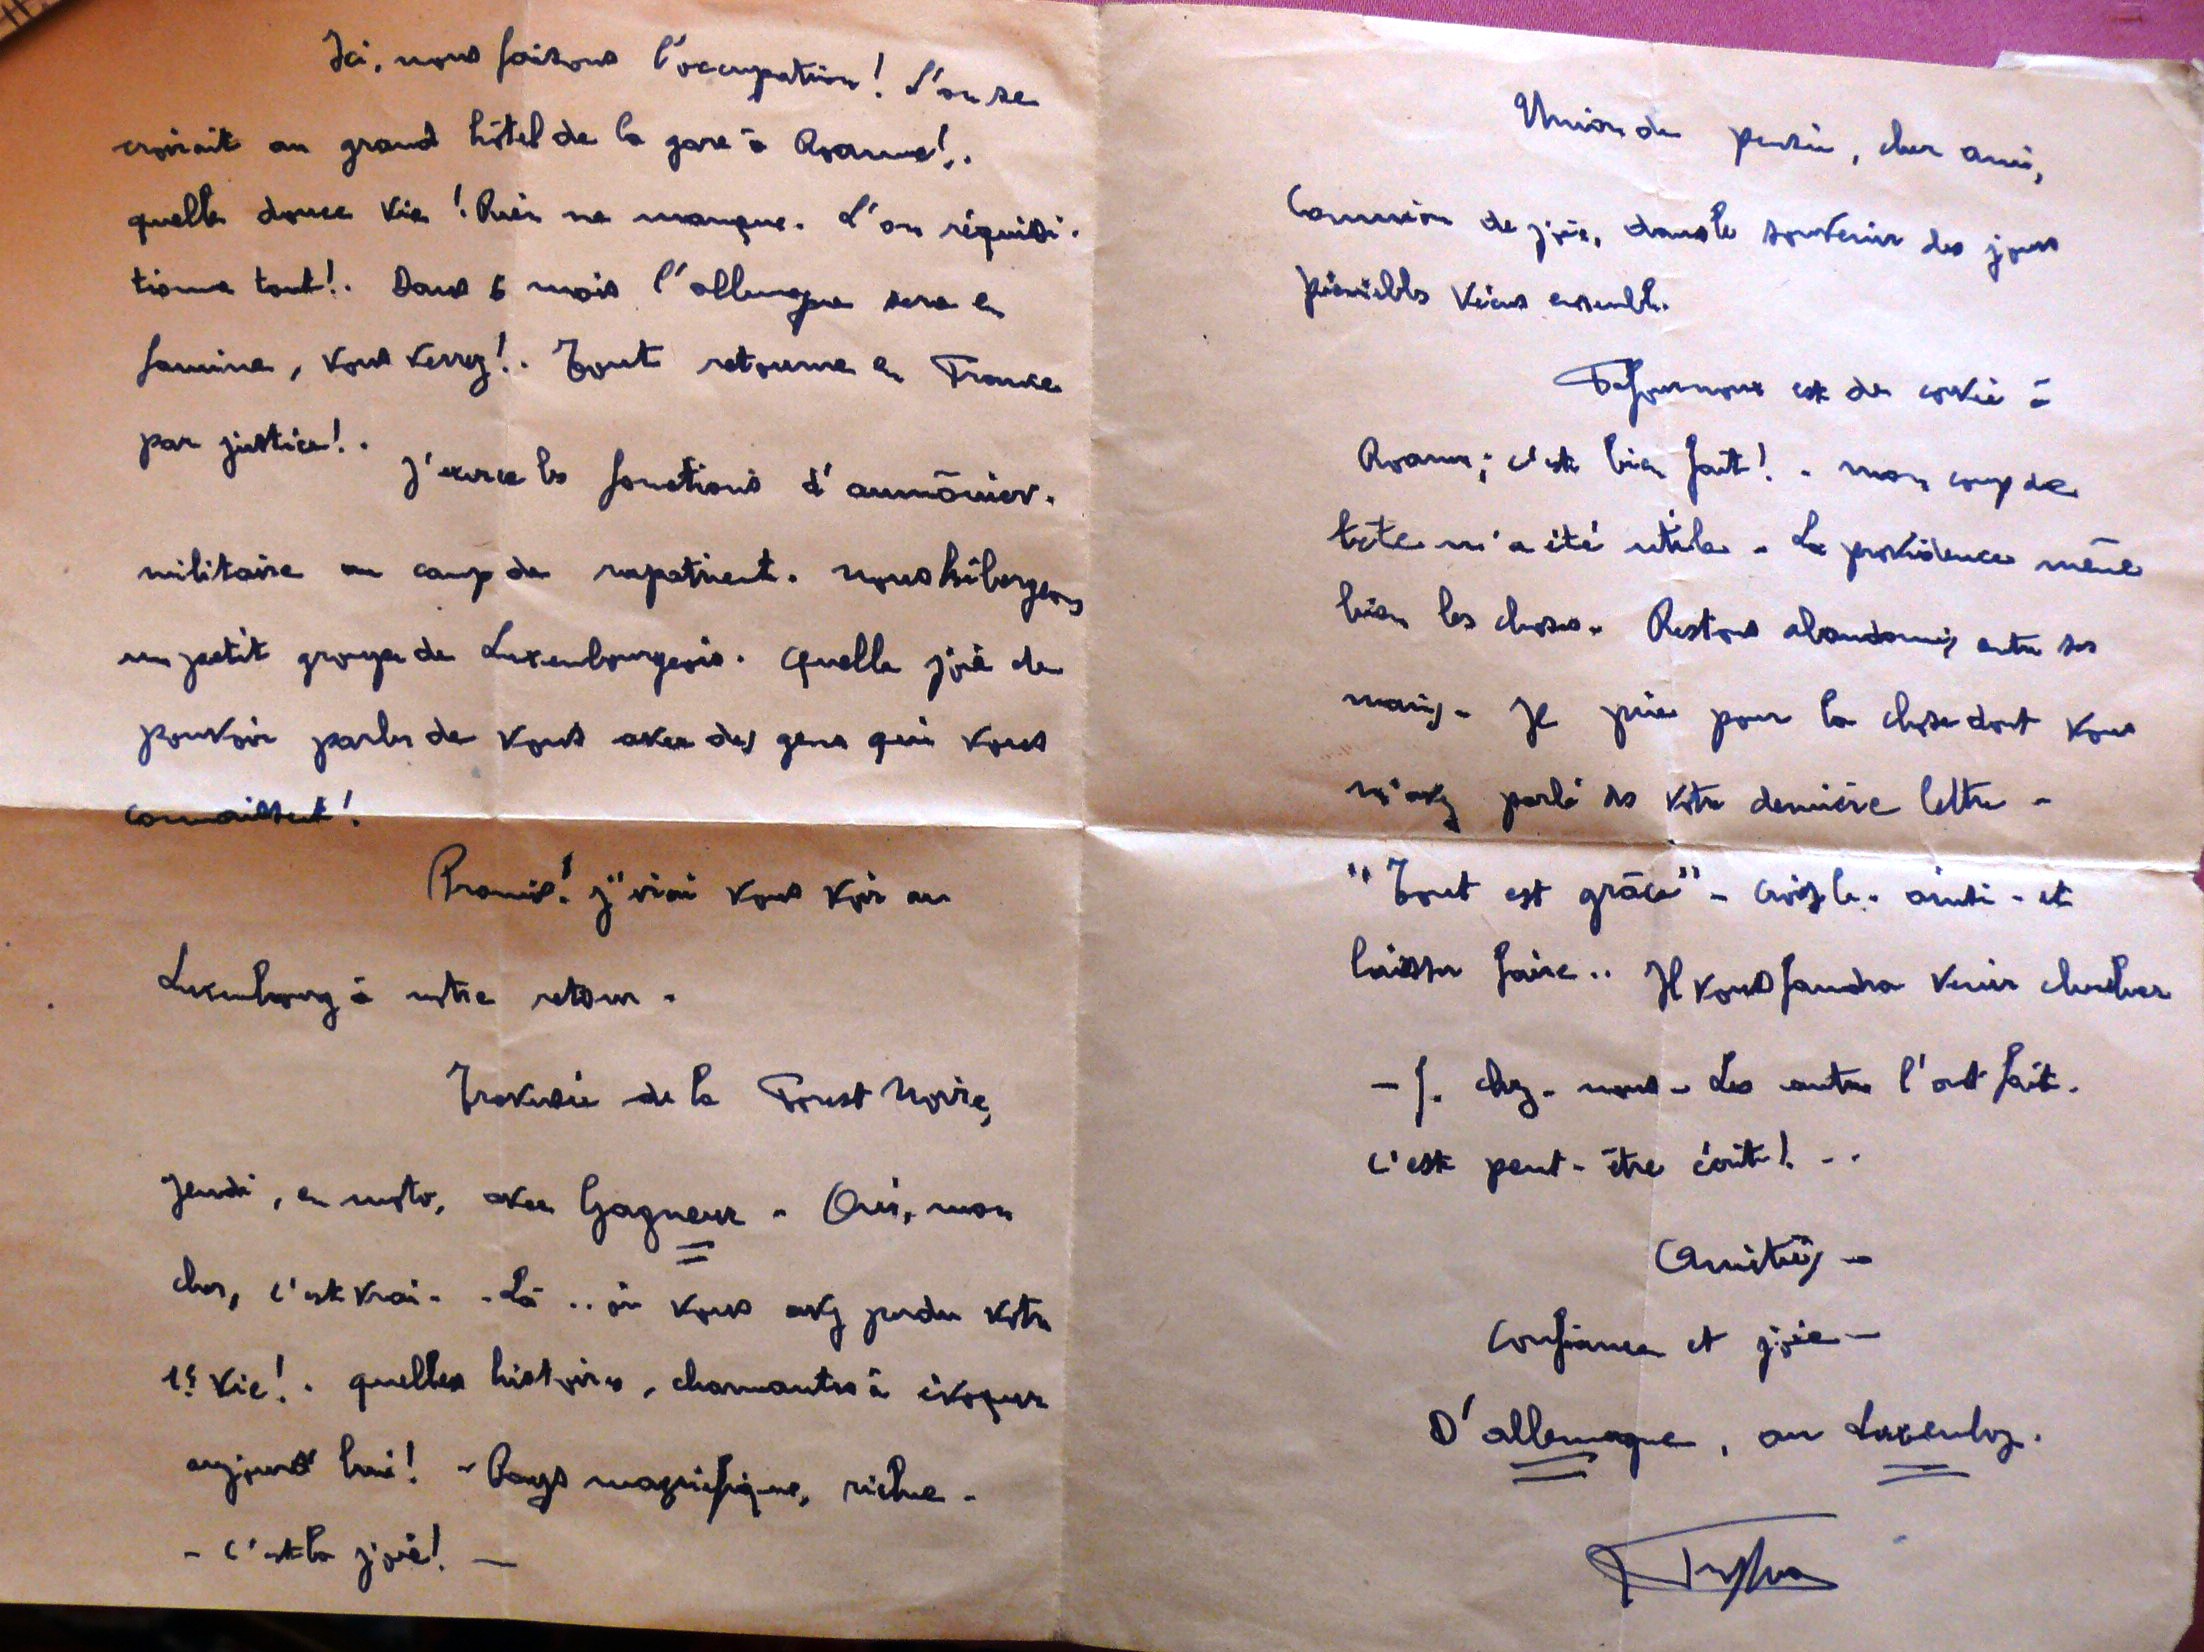 Ici, nous faisons l'occupation! L'on se
croirait au grand hôtel de la gare à Roanne!..
quelle douce vie! Rien ne manque. L'on réquisi-
tionne tout!. Dans 6 mois l'allemagne sera en
famine, vous verrez!. Tout retourne en France
par justice!.
J'exerce les fonctions d'aumônier.
militaire au camp de rapatrient. nous hébergeons
un petit groupe de Luxembourgeois. Quelle joie de
pouvoir parler de vous avec des gens qui vous
connaissent!
Promis! j'irai vous voir au
Luxembourg à notre retour.
Traversée de la Forest Noire,
Jeudi, en moto, avec Gagneur - Oui, mon
cher, c'est vrai - - Là .. où vous avez perdu votre
1e vie!. quelles histoires, charmantes à évoquer
aujourd'hui! - Pays magnifique, riche -
- c'est la joie! —
Union de pensée, cher ami,
Communion de joie, dans le souvenir des jours
pénibles vécus ensemble.
est de corvée à
Roanne; c'est bien fait! - mon coup de
tête m'a été utile - La providence mène
bien les choses - Restons abandonnés entre ses
mains - Je prie pour la chose dont vous
m'avez parlé ds votre dernière lettre -
"Tout est grâce" - croyez le - ainsi - et
laisser faire .. Il vous faudra venir chercher
- f. chez-nous - Les autres l'ont fait.
c'est peut-être écrit! ..
Amitiés -
Confiance et joie -
D'allemagne, au Luxembg.